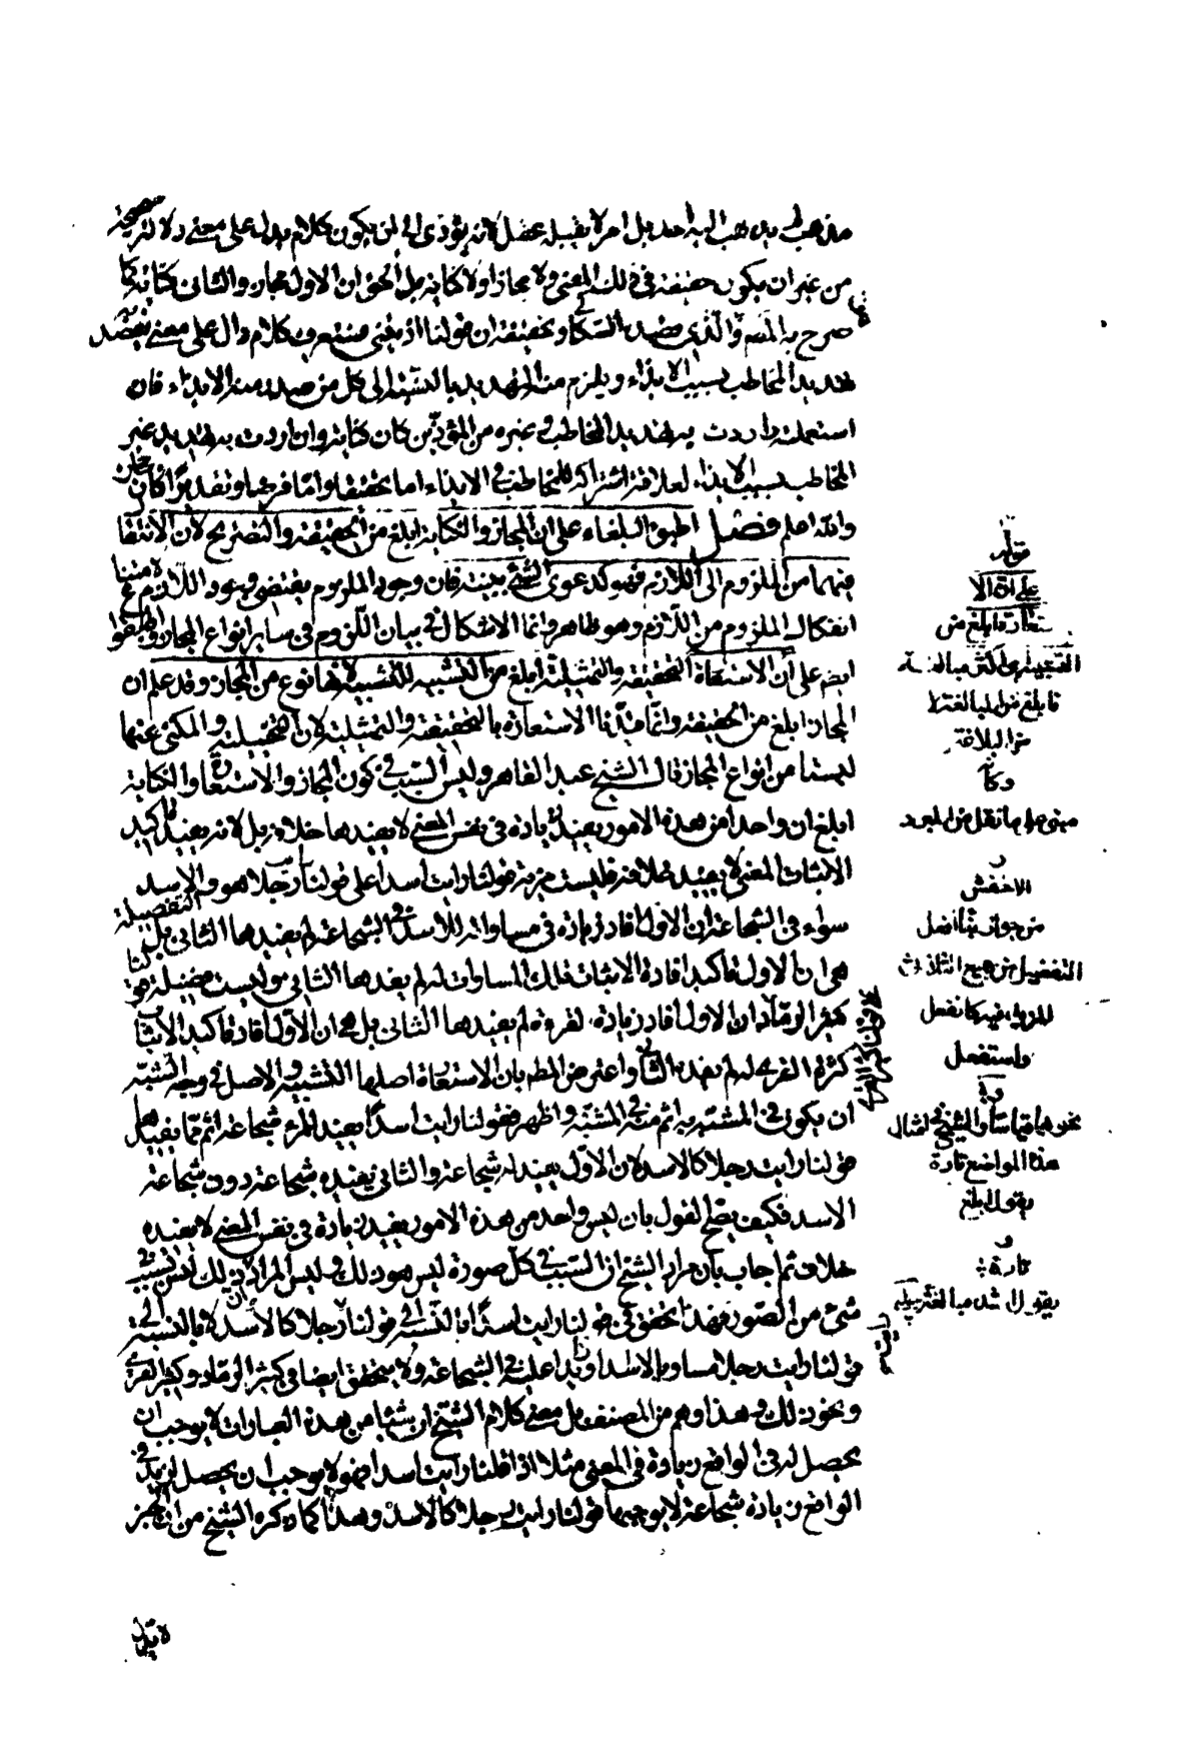 مذهب لم يذهب اليه احد بل امر لا يقبله عقل لانه يؤدى الى ان يكون كلام يدل على معنى دلالة صحيحة
من غير ان يكون حقيقة فى ذلك المعنى ولا مجازا ولا كناية بل الحق ان الاول مجاز والثانى كناية كما
صرح به المصنف والذى قصده السكاكى وتحقيقه ان قولنا آذيتنى فستعرف كلام دال على معنى يقصد به
تهديد المخاطب بسبب الايذاء ويلزم منه التهديد بالنسبة الى كل من صدر منه الايذاء فان
استعملته واردت به تهديد المخاطب وغيره من المؤذين كان كناية وان اردت به تهديد غير
المخاطب بسبب الايذاء لعلاقة اشتراكه للمخاطب فى الايذاء اما تحقيقا واما فرضا وتقديرا كان مجازا
والله اعلم فصل اطبق البلغاء على ان المجاز والكناية ابلغ من الحقيقة والتصريح لان الانتقال
فيهما من الملزوم الى اللازم فهو كدعوى الشئ ببينة فان وجود الملزوم يقتضى وجود اللازم لامتناع
انفكاك الملزوم من اللازم وهو ظاهر وانما الاشكال فى بيان اللزوم فى ساير انواع المجاز واطبقوا
ايضا على ان الاستعارة التحقيقية والتمثيلية ابلغ من التشبيه لانها نوع من المجاز وقد علم ان
المجاز ابلغ من الحقيقة وانما قيدنا الاستعارة بالتحقيقية والتمثيلية لان التخييلية والمكنى عنها
ليستا من انواع المجاز قال الشيخ عبد القاهر وليس السبب فى كون المجاز والاستعارة والكناية
ابلغ ان واحدا من هذه الامور يفيد زيادة فى نفس المعنى لا يفيدها خلافه بل لانه يفيد تاكيد
الاثبات المعنى لا يفيده خلافه فليست مزية قولنا رايت اسدا على قولنا رايت رجلا هو والاسد
سواء فى الشجاعة ان الاول افاد زيادة فى مساواته للاسد فى الشجاعة لم يفيدها الثانى بل الفضيلة
هى ان الاول تاكيد افادة الاثبات تلك المساوات له لم يفدها الثانى وليست فضيلة قولنا
كثير الرماد ان الاول افاد زيادة لقراه لم يفيدها الثانى بل هى ان الاول افاد تاكيد الاثبات
كثرة القرى له لم يفده الثانى واعترض المصنف بان الاستعارة اصلها التشبيه والاصل فى وجه الشبه
ان يكون فى المشبه به اتم منه فى المشبه واظهر فقولنا رايت اسدا يفيد للمرء شجاعة اتم مما يفيدها
قولنا رايت رجلا كالاسد لان الاول يفيد له شجاعة والثانى يفيده شجاعة دون شجاعة
الاسد فكيف يصح القول بان ليس واحد من هذه الامور يفيد زيادة فى نفس المعنى لا يفيده
خلافه ثم اجاب بان مراد الشيخ ان السبب فى كل صورة ليس هو ذلك وليس المراد ان ذلك ليس بسبب فى
شئ من الصور فهذا تحقق فى قولنا رايت اسدا بالنسبة الى قولنا رايت رجلا كالاسد لا بالنسبة الى
قولنا رايت رجلا مساويا للاسد او زيدا عليه فى الشجاعة ولا يتحقق ايضا فى كثير الرماد وكثير القرى
ونحو ذلك وهذا وهم من المصنف بل معنى كلام الشيخ ان شيئا من هذه العبارات لا يوجب ان
يحصل له فى الواقع زيادة فى المعنى مثلا اذا قلنا رايت اسدا فهو لا يوجب ان يحصل لزيد فى
الواقع زيادة شجاعة لا يوجبها قولنا رايت رجلا كالاسد وهذا كما ذكره الشيخ من ان الخبر
قوله
على ان الا
ستعارة ابلغ من
التشبيه اى اكثر مبالغة
فابلغ من المبالغة لا
من البلاغة
وكأنه
مبنى على ما نقل عن المبرد
و
الاخفش
من جواز بناء افعل
التفضيل من جميع الثلاثى
المزيد فيه كانفعل
واستفعل
نحوها قياسا والشيخ فى امثال
هذا المواضع تارة
يقول ابلغ
و
تارة
يقول اشد مبالغة
لا يدل